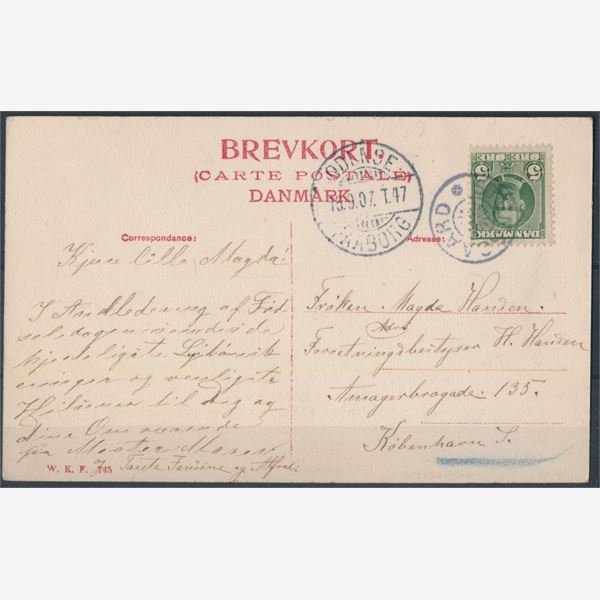 BREVKORT.
(CARTE POSTALE)
DANMARK
ODENSE
15.9.07. T.47
FAABORG
5 ØRE 5
DANMARK
GAARD *
Correspondance:
Adresse:
Kjære lille Magda!
I Andledening af Fød
selsdagen
hjerteligste Lykønsk
ninger og venligste
Hilsener til dig og
dine Omværende
fra Moster Maren
og Tante Jensine og Alfred.
W. K. F. 745
Frøken Magda Handen.
Adrs
Forretningsbestyrer H. Handen
Amagerbrogade. 135.
København S.